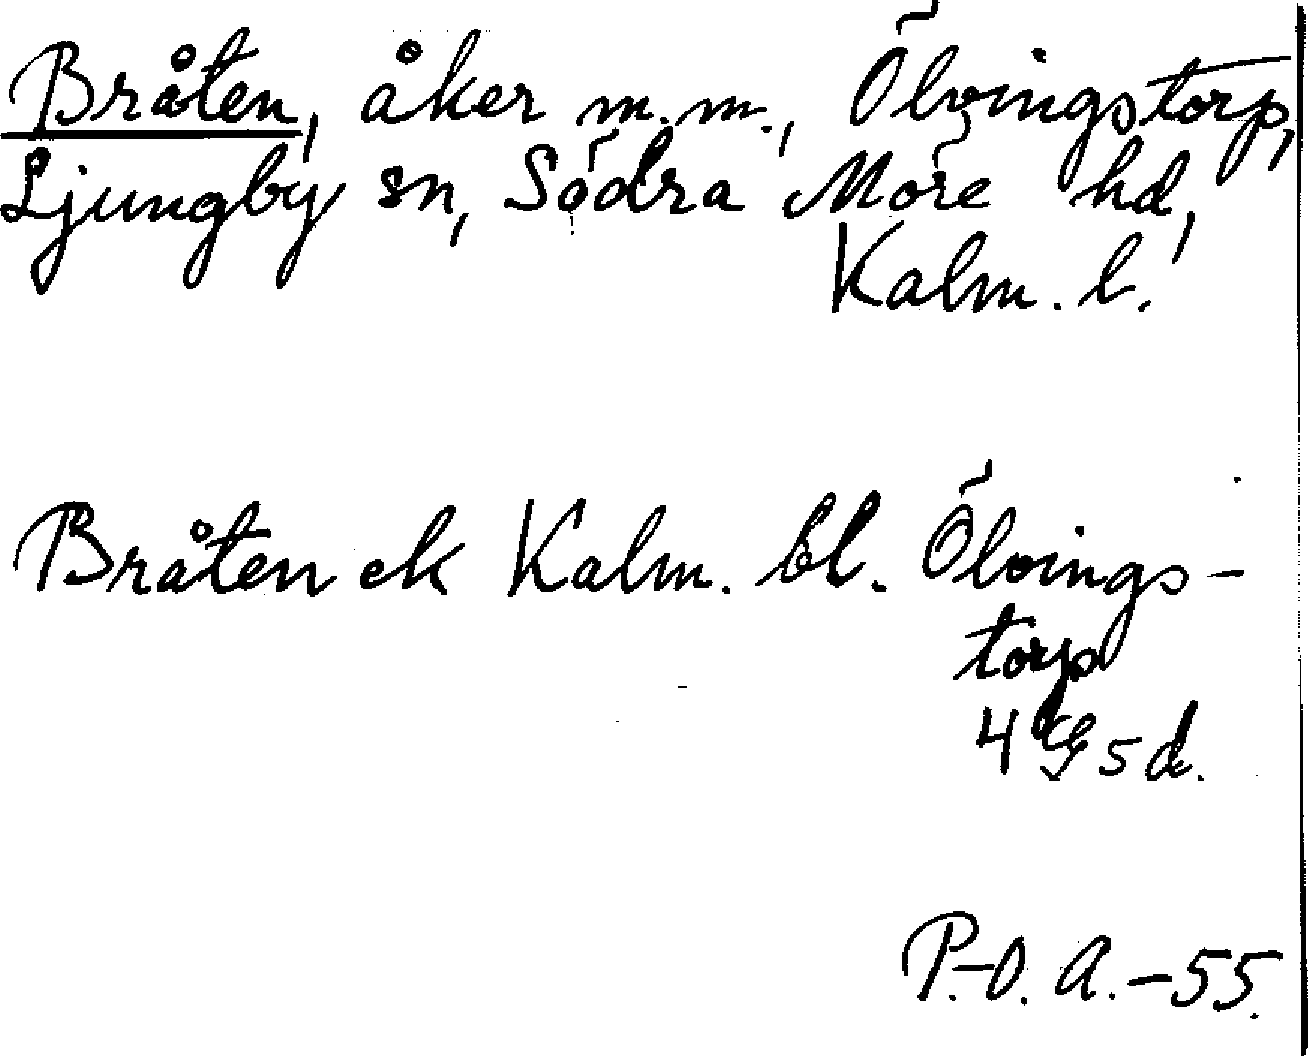 Bråten, åker m.m., Ölvingstorp,
Ljungby sn, Södra Möre hd,
Kalm. l.
Bråten ek Kalm. bl. Ölvings-
torp
4 G 5 d.
P.-O. A.-55.